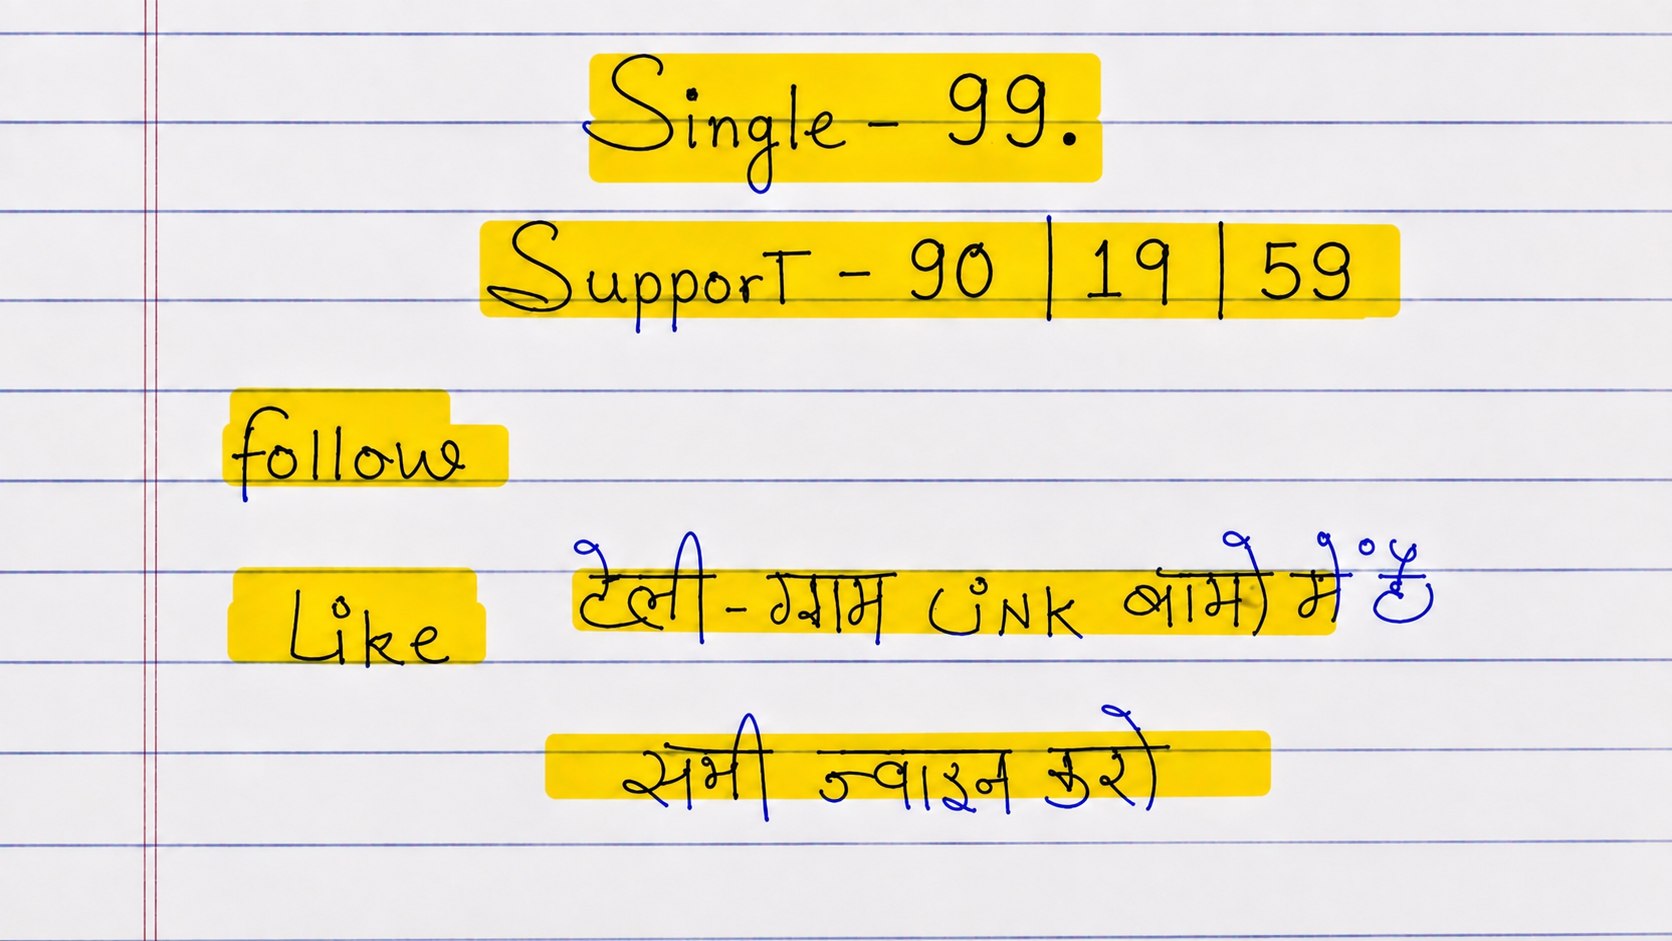 Single - 99.
Support - 90 | 19 | 59
follow
Like
टेली - ग्राम Link बायो में है
सभी ज्वाइन करो